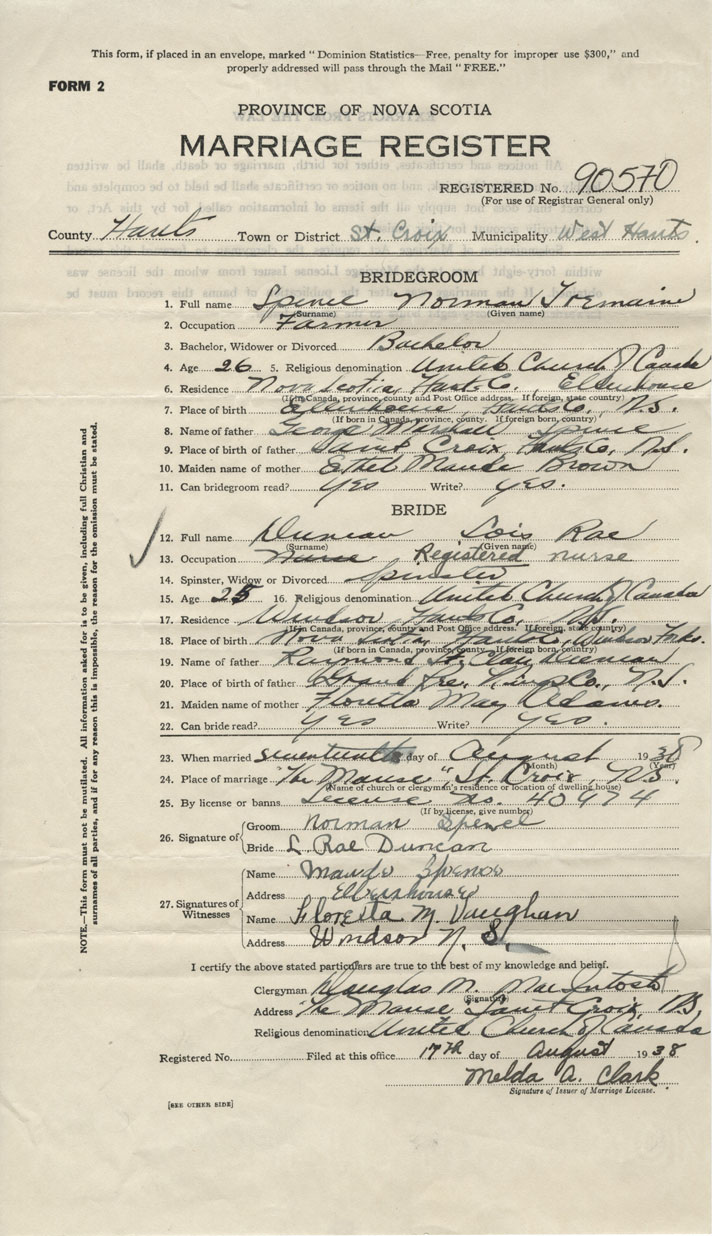 This form, if placed in an envelope, marked "Dominion Statistics—Free, penalty for improper use $300," and
properly addressed will pass through the Mail "FREE."
FORM 2
PROVINCE OF NOVA SCOTIA
MARRIAGE REGISTER
REGISTERED No. 90570
(For use of Registrar General only)
County Hants Town or District St. Croix Municipality West Hants
BRIDEGROOM
1. Full name Spence Norman Tremaine
(Surname) (Given name)
2. Occupation Farmer
3. Bachelor, Widower or Divorced Bachelor
4. Age 26 5. Religious denomination United Church of Canada
6. Residence Nova Scotia, Hants Co., Ellershouse
(If in Canada, province, county and Post Office address. If foreign, state country)
7. Place of birth Ellershouse, Hants Co., N.S.
(If born in Canada, province, county. If foreign born, country)
8. Name of father George Marshall Spence
9. Place of birth of father Saint Croix, Hants Co., N.S.
10. Maiden name of mother Ethel Maude Brown
11. Can bridegroom read? Yes Write? Yes.
BRIDE
12. Full name Duncan Lois Rae
(Surname) (Given name)
13. Occupation Nurse Registered nurse
14. Spinster, Widow or Divorced Spinster
15. Age 25 16. Religious denomination United Church of Canada
17. Residence Windsor, Hants Co., N.S.
(If in Canada, province, county and Post Office address. If foreign, state country)
18. Place of birth Nova Scotia, Hants Co., Windsor Forks.
(If born in Canada, province, county. If foreign born, country)
19. Name of father Raymond St. Clair Duncan
20. Place of birth of father Grand Pre, Kings Co., N.S.
21. Maiden name of mother Floretta May Adams.
22. Can bride read? Yes Write? Yes.
23. When married seventeenth day of August 1938
(Month) (Year)
24. Place of marriage "The Manse", St. Croix, N.S.
(Name of church or clergyman's residence or location of dwelling house)
25. By license or banns License No. 40974
(If by license, give number)
26. Signature of
Groom Norman Spence
Bride L. Rae Duncan
27. Signatures of Witnesses
Name Maude Spence
Address Ellershouse
Name Floretta M. Vaughan
Address Windsor N. S.
I certify the above stated particulars are true to the best of my knowledge and belief.
Clergyman Douglas M. MacIntosh
(Signature)
Address The Manse, Saint Croix, N.S.
Religious denomination United Church of Canada
Registered No. Filed at this office 17th day of August 1938
Melda A. Clark
Signature of Issuer of Marriage License.
[SEE OTHER SIDE]
NOTE.—This form must not be mutilated. All information asked for is to be given, including full Christian and
surnames of all parties, and if for any reason this is impossible, the reason for the omission must be stated.